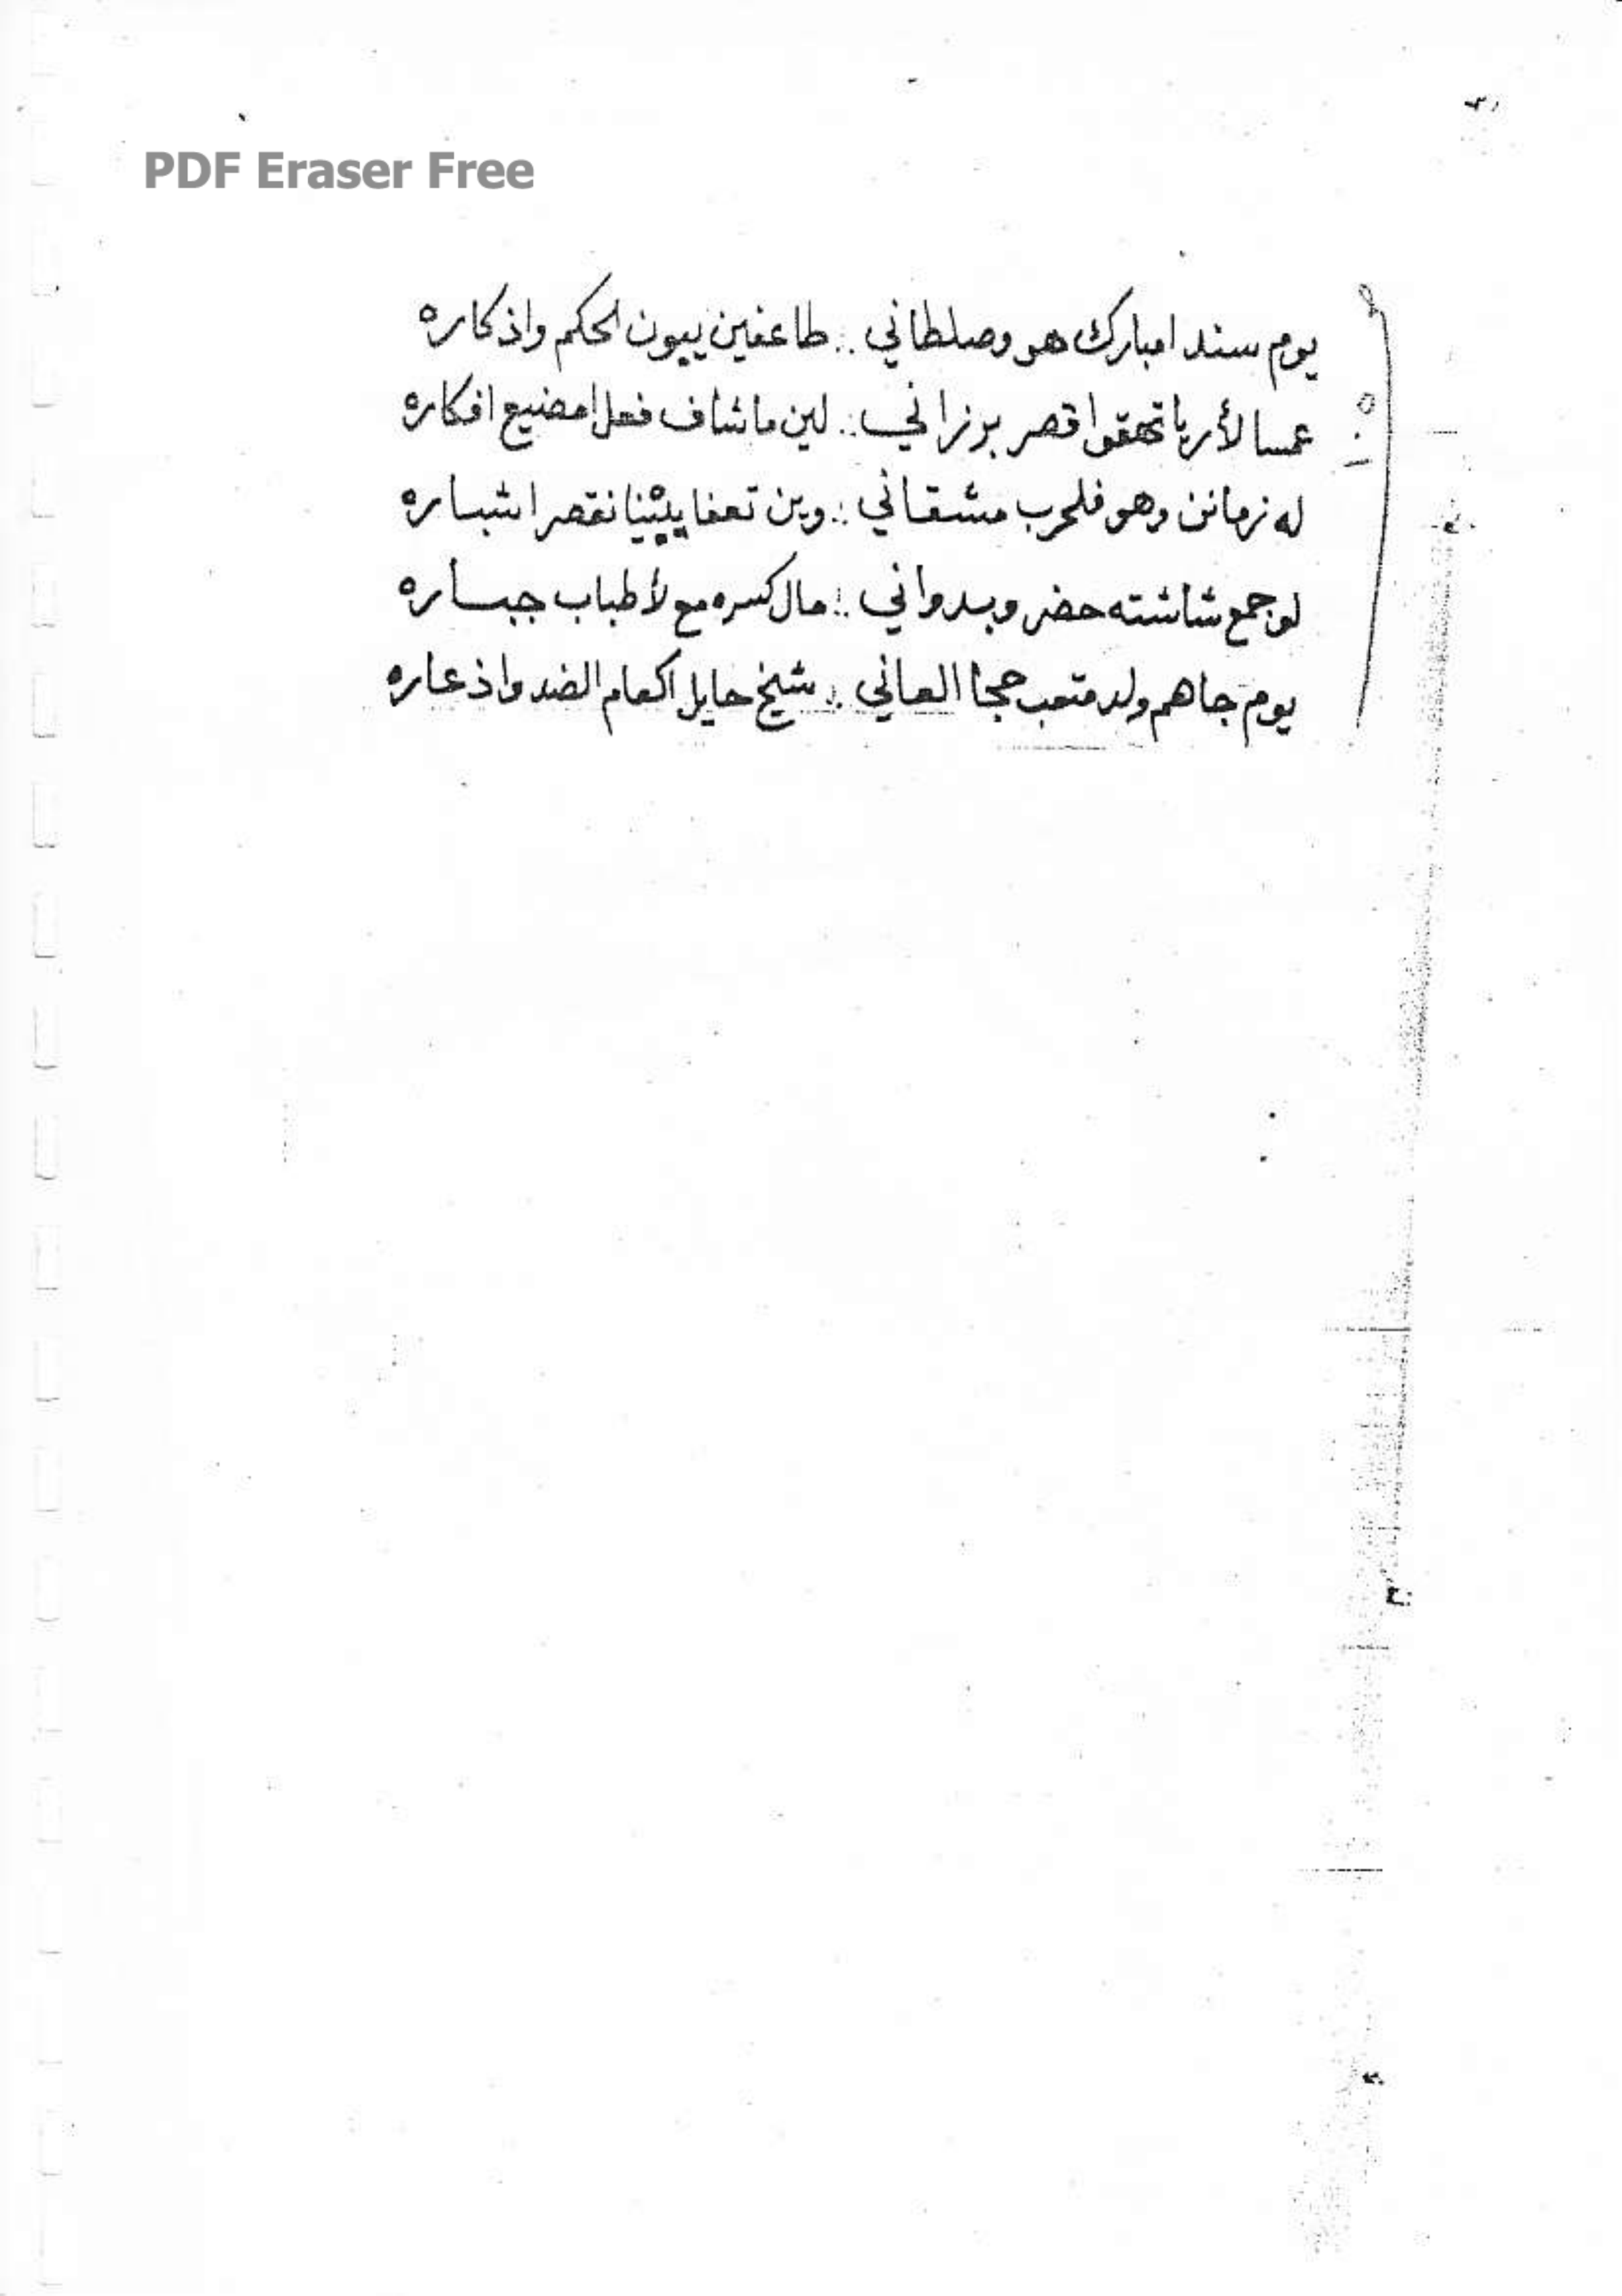 PDF Eraser Free
يوم سند امبارك هو وصلطاني .. طاعفين يبون الحكم واذكاره
عسا لأرياتهقوا قصر برزاني .. لين ما شاف فعل امضيع افكاره
له زمانن وهو فلحرب مشقاني .. وين تعفا يبينا نقصر اشباره
لو جمع شاشته حضر وبدواني .. مال كسره مع لأطباب جباره
يوم جاهم ولد متعب حجا العاني .. شيخ حايل اكعام الضد واذعاره